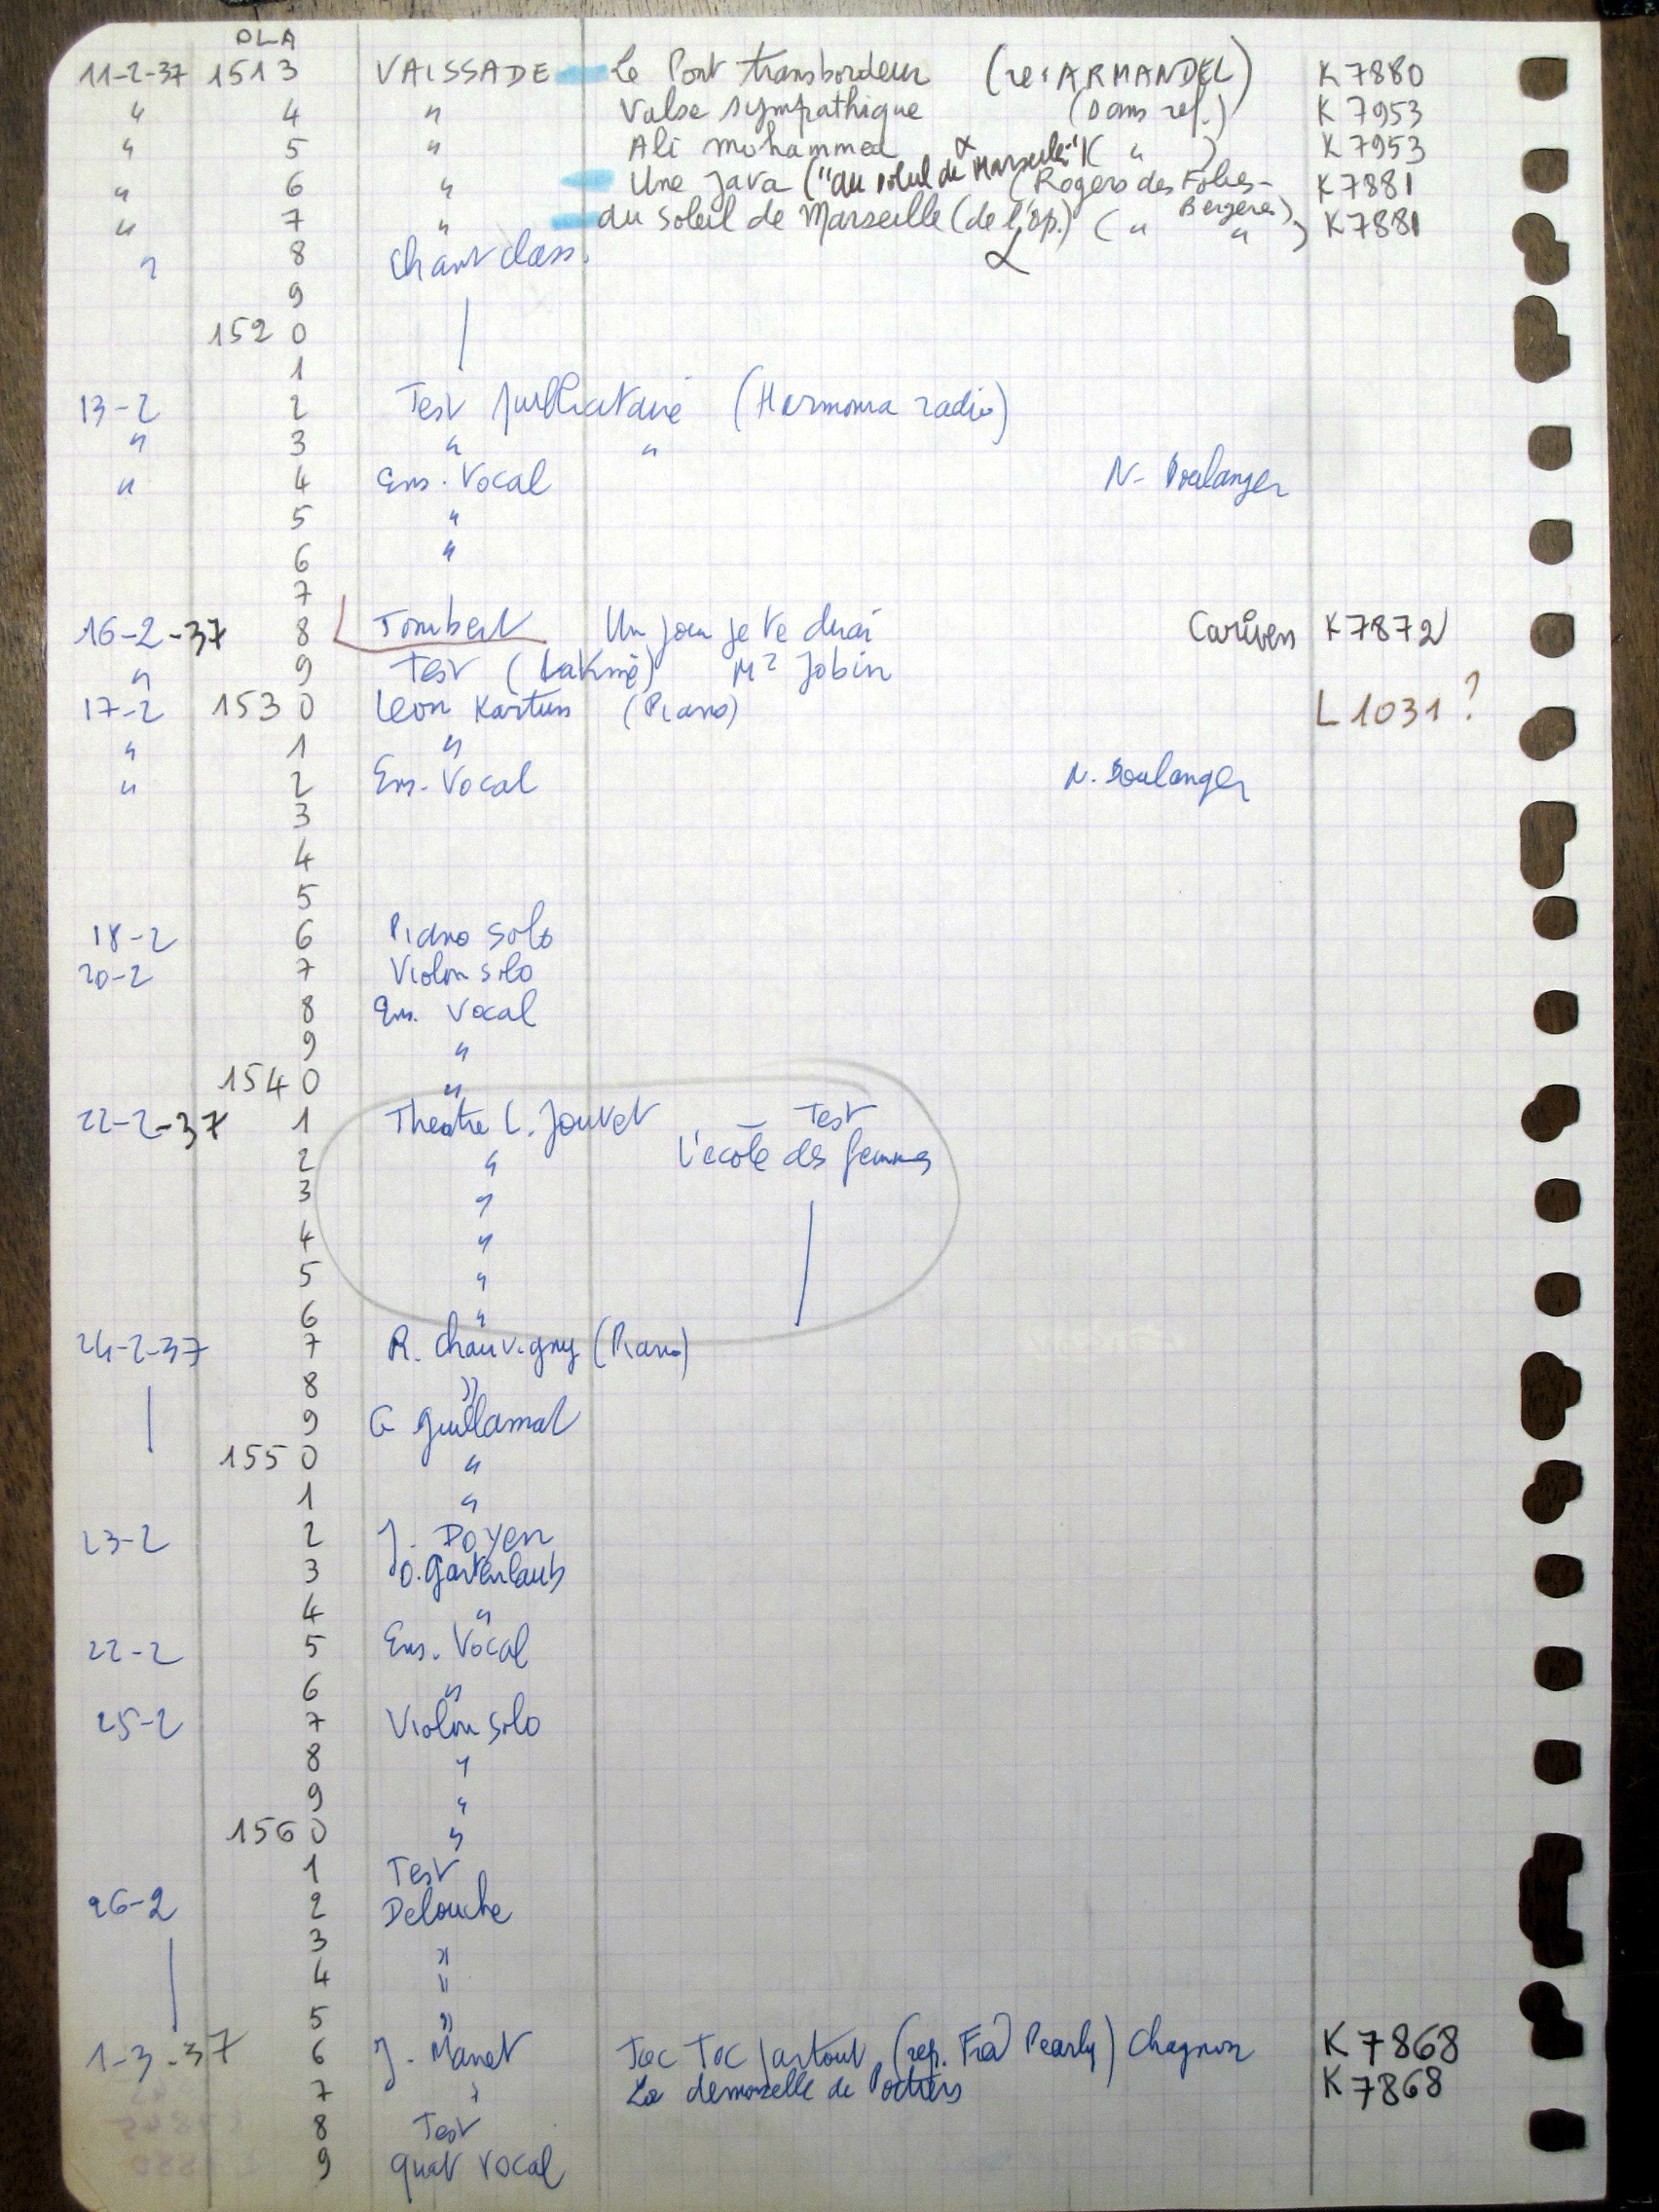 OLA
11-2-37 1513 VAISSADE Le Pont transbordeur (re: ARMANDEL) K 7880
" 4 " Valse sympathique (Dans ref.) K 7953
" 5 " Ali mohammed ( " ) K 7953
" 6 " Une java ("au soleil de Marseille" (Rogers des Folies-Bergères) K 7881
" 7 " au soleil de Marseille (de l'op.) ( " " ) K 7881
? 8 Chant class.
9
1520
1
13-2 2 Test publicitaire (Harmonia radio)
" 3 " "
" 4 Ens. Vocal N- Boulanger
5 "
6 "
7
16-2-37 8 Jombert Un jour je te dirai Cariven K 7872
" 9 Test (Lakmé) Mr Jobin
17-2 1530 Leon Kartun (Piano) L 1031 ?
" 1 "
" 2 Ens. Vocal N. Boulanger
3
4
5
18-2 6 Piano solo
20-2 7 Violon solo
8 Ens. Vocal
9 "
1540 "
22-2-37 1 Theatre L. Jouvet — Test
2 " L'ecole des femmes
3 "
4 "
5 "
6 "
24-2-37 7 R. Chauvigny (Piano)
8 "
9 G Guillamat
1550 "
1 "
23-2 2 J. Doyen
3 O. Gartenlaub
4 "
22-2 5 Ens. Vocal
6 "
25-2 7 Violon solo
8 "
9 "
1560 "
1 Test
26-2 2 Delouche
3 "
4 "
5 "
1-3-37 6 J. Manet Toc Toc partout (rep. Fred Pearly) Chagnon K 7868
7 " La demoiselle de Poitiers K 7868
8 Test
9 quat vocal